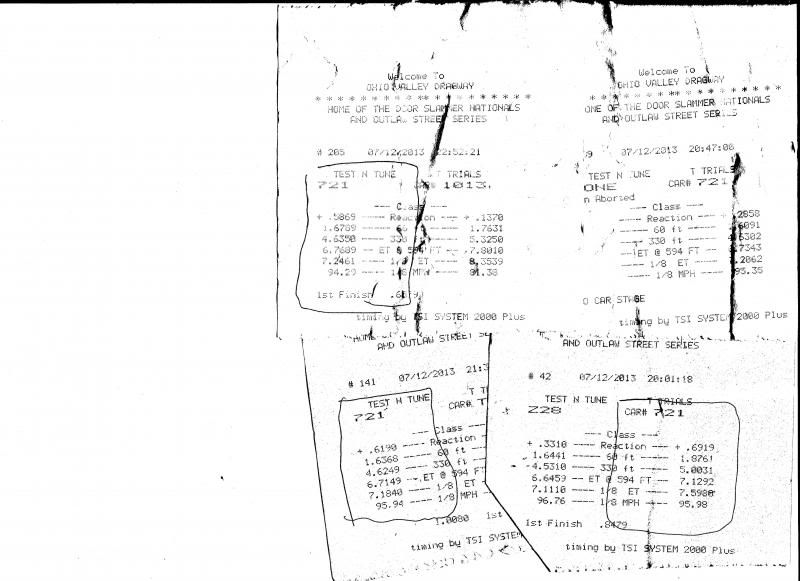 Welcome To
OHIO VALLEY DRAGWAY
* * * * * * * * * * * * * * * * * * * *
HOME OF THE DOOR SLAMMER NATIONALS
AND OUTLAW STREET SERIES
# 205 07/12/2013 22:52:21
TEST N TUNE T TRIALS
721 CAR# 1013.
--- Class
+ .5869 ---- Reaction ---- + .1370
1.6789 ---- 60 ---- 1.7631
4.6350 ---- 330 ft ---- 5.3250
6.7689 -- ET @ 594 FT -- 7.8010
7.2461 ---- 1/8 ET ---- 8.3539
94.29 ---- 1/8 MPH ---- 81.38
1st Finish
timing by TSI SYSTEM 2000 Plus
Welcome To
OHIO VALLEY DRAGWAY
* * * * * * * * * * * * * * * * * *
OME OF THE DOOR SLAMMER NATIONALS
AND OUTLAW STREET SERIES
9 07/12/2013 20:47:06
TEST N TUNE T TRIALS
ONE CAR# 721
n Aborted
---- Class ----
---- Reaction ---- .2858
---- 60 ft ---- .6091
---- 330 ft ---- .6302
-- ET @ 594 FT -- .7343
---- 1/8 ET ---- 7.2062
---- 1/8 MPH ---- 95.35
O CAR STAGE
timing by TSI SYSTEM 2000 Plus
AND OUTLAW STREET
# 141 07/12/2013 21:3
TEST N TUNE T T
721 CAR# T
---- Class
+ .6190 ---- Reaction
1.6368 ---- 60 ft --
4.6249 ---- 330 ft --
6.7149 -- ET @ 594 FT
7.1840 ---- 1/8 ET
95.94 ---- 1/8 MPH
1.0080 1st
timing by TSI SYSTEM
AND OUTLAW STREET SERIES
# 42 07/12/2013 20:01:18
TEST N TUNE T TRIALS
Z28 CAR# 721
---- Class ----
+ .3310 ---- Reaction ---- + .6919
1.6441 ---- 60 ft ---- 1.8761
4.5310 ---- 330 ft ---- 5.0031
6.6459 -- ET @ 594 FT -- 7.1292
7.1110 ---- 1/8 ET ---- 7.5980
96.76 ---- 1/8 MPH ---- 95.98
1st Finish .8479
timing by TSI SYSTEM 2000 Plus